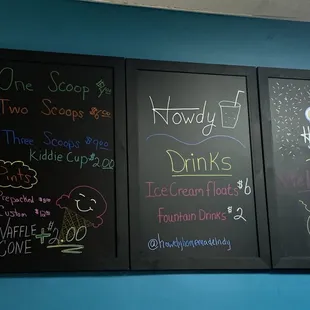 One Scoop
Two Scoops
Three Scoops
Kiddie Cup $2.00
Pints
Prepacked
Custom
WAFFLE
CONE + $2.00
Howdy
Drinks
Ice Cream floats $6
Fountain Drinks $2
@howdyhomemadeindy